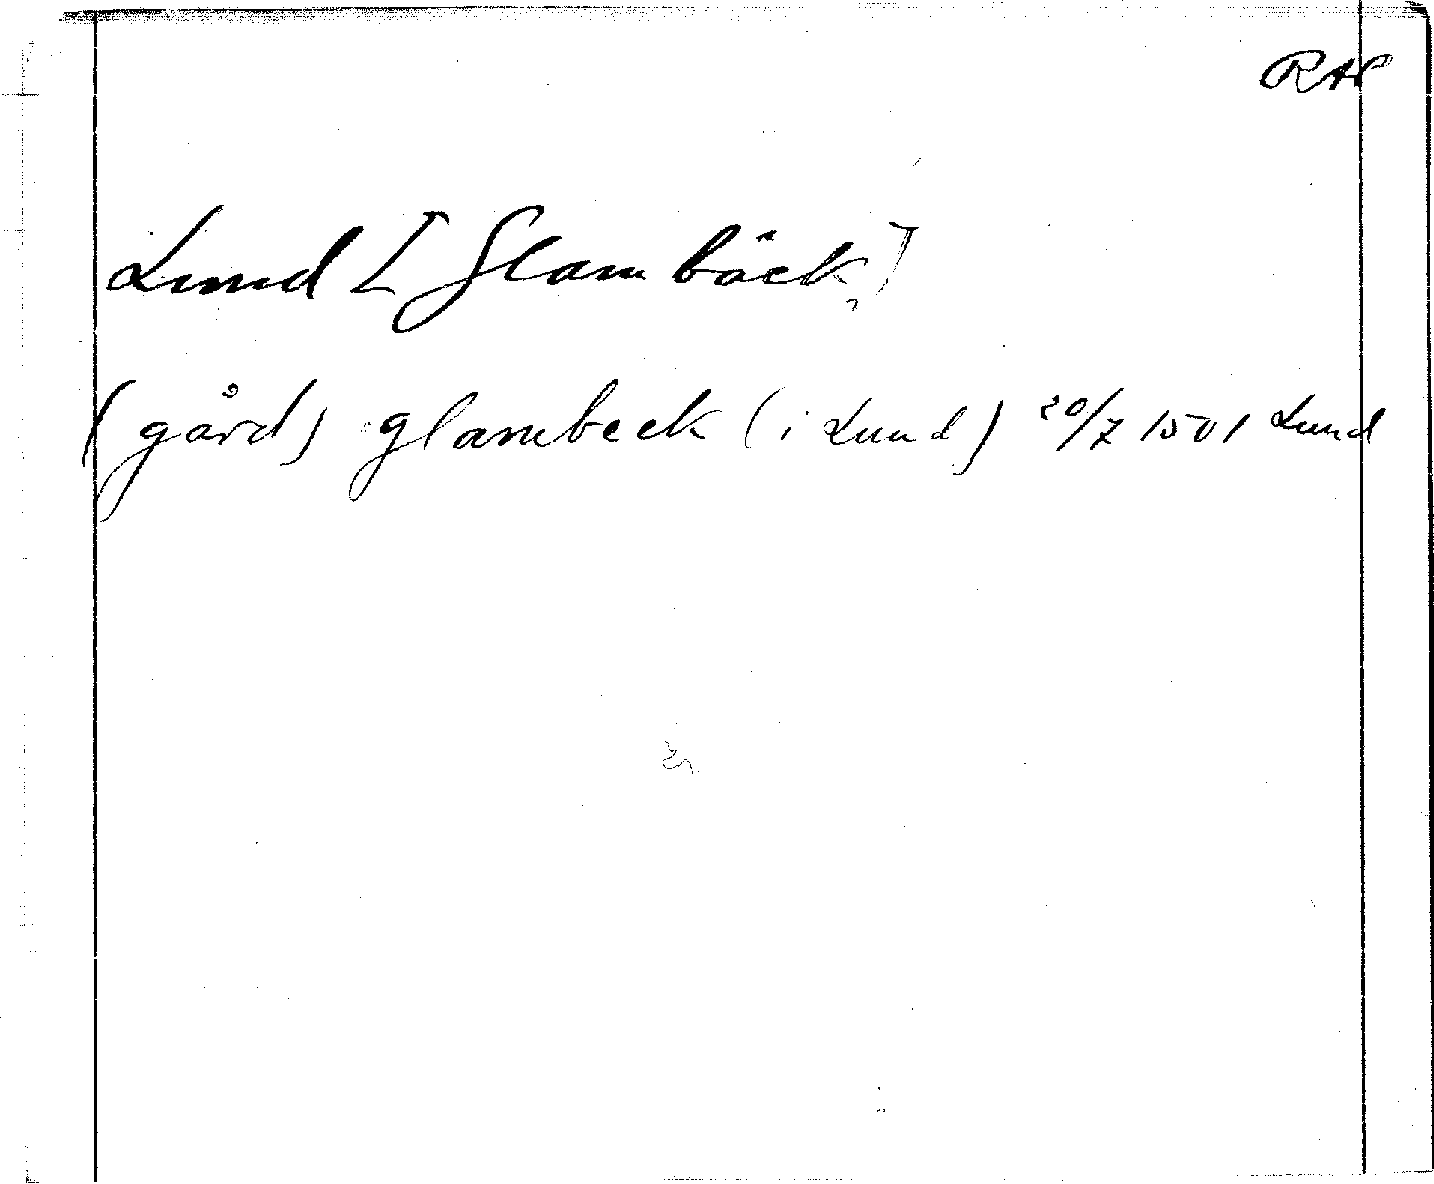 RAP
Lund [Glambäck]
(gård) glambeck (i Lund) 20/7 1501 Lund